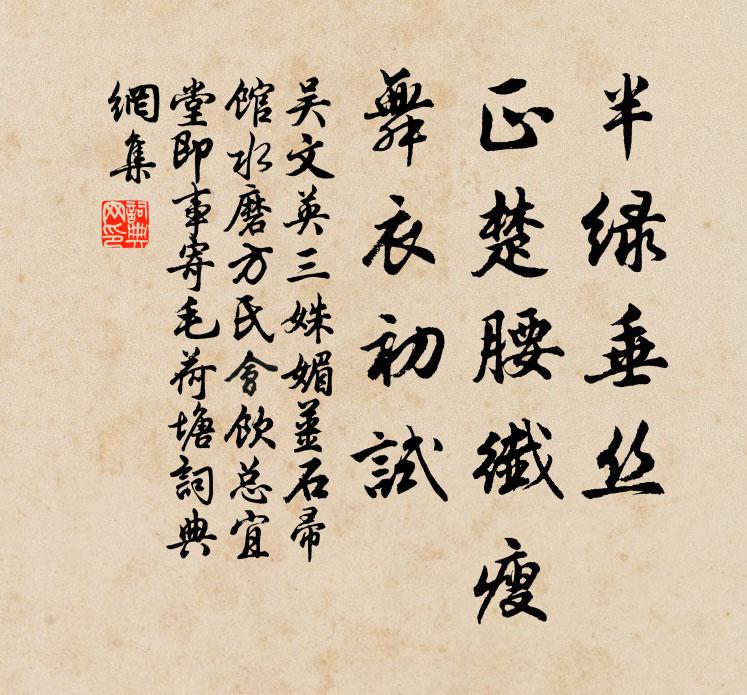 半绿垂丝
正楚腰纖瘦
舞衣初試
吴文英三姝媚薑石帚
館水磨方氏會飲总宜
堂即事寄毛荷塘詞典
網集
詞典
网印